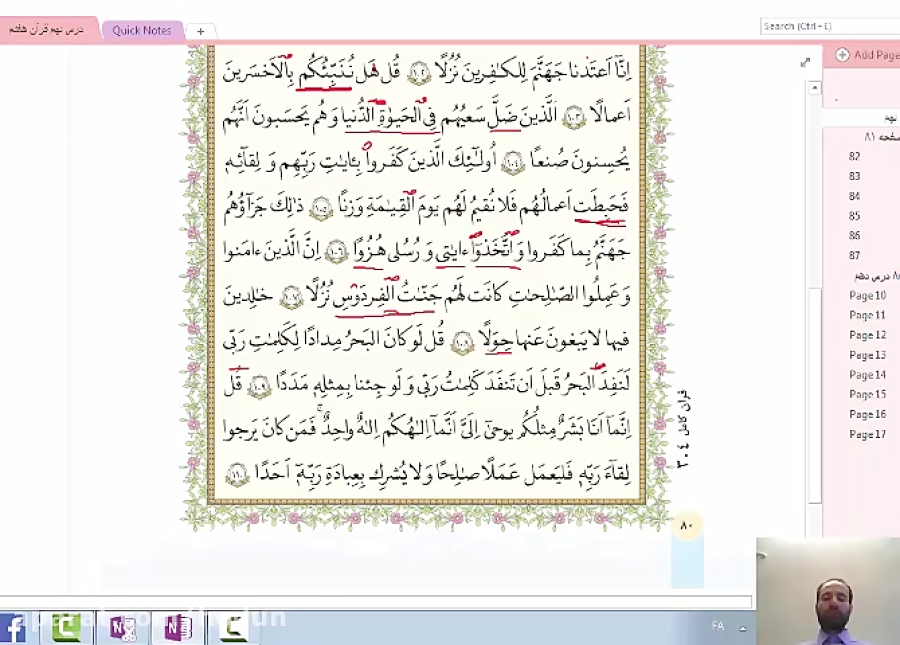 درس نهم قرآن هفتم
Quick Notes
+
Search (Ctrl+E)
Add Page
اِنّا اَعتَدنا جَهَنَّمَ لِلكافِرينَ نُزُلًا ١٠٢ قُل هَل نُنَبِّئُكُم بِالاَخسَرينَ
اَعمالًا ١٠٣ اَلَّذينَ ضَلَّ سَعيُهُم فِي الحَيوٰةِ الدُّنيا وَ هُم يَحسَبونَ اَنَّهُم
يُحسِنونَ صُنعًا ١٠٤ اُولٰئِكَ الَّذينَ كَفَروا بِـٔايٰتِ رَبِّهِم وَ لِقائِهٖ
فَحَبِطَت اَعمالُهُم فَلا نُقيمُ لَهُم يَومَ القِيٰمَةِ وَزنًا ١٠٥ ذٰلِكَ جَزآؤُهُم
جَهَنَّمُ بِما كَفَروا وَ اتَّخَذوٓا ءايٰتي وَ رُسُلي هُزُوًا ١٠٦ اِنَّ الَّذينَ ءامَنوا
وَ عَمِلُوا الصّٰلِحٰتِ كانَت لَهُم جَنّٰتُ الفِردَوسِ نُزُلًا ١٠٧ خٰلِدينَ
فيها لا يَبغونَ عَنها حِوَلًا ١٠٨ قُل لَو كانَ البَحرُ مِدادًا لِكَلِمٰتِ رَبّي
لَنَفِدَ البَحرُ قَبلَ اَن تَنفَدَ كَلِمٰتُ رَبّي وَ لَو جِئنا بِمِثلِهٖ مَدَدًا ١٠٩ قُل
اِنَّمآ اَنَا بَشَرٌ مِثلُكُم يوحىٰٓ اِلَیَّ اَنَّمآ اِلٰهُكُم اِلٰهٌ واحِدٌ ۚ فَمَن كانَ يَرجوا
لِقآءَ رَبِّهٖ فَليَعمَل عَمَلًا صٰلِحًا وَ لا يُشرِك بِعِبادَةِ رَبِّهٖٓ اَحَدًا ١١٠
قرآن کامل ٣٠٤
٨٠
نهم
صفحه ٨١
82
83
84
85
86
87
درس دهم
Page 10
Page 11
Page 12
Page 13
Page 14
Page 15
Page 16
Page 17
FA